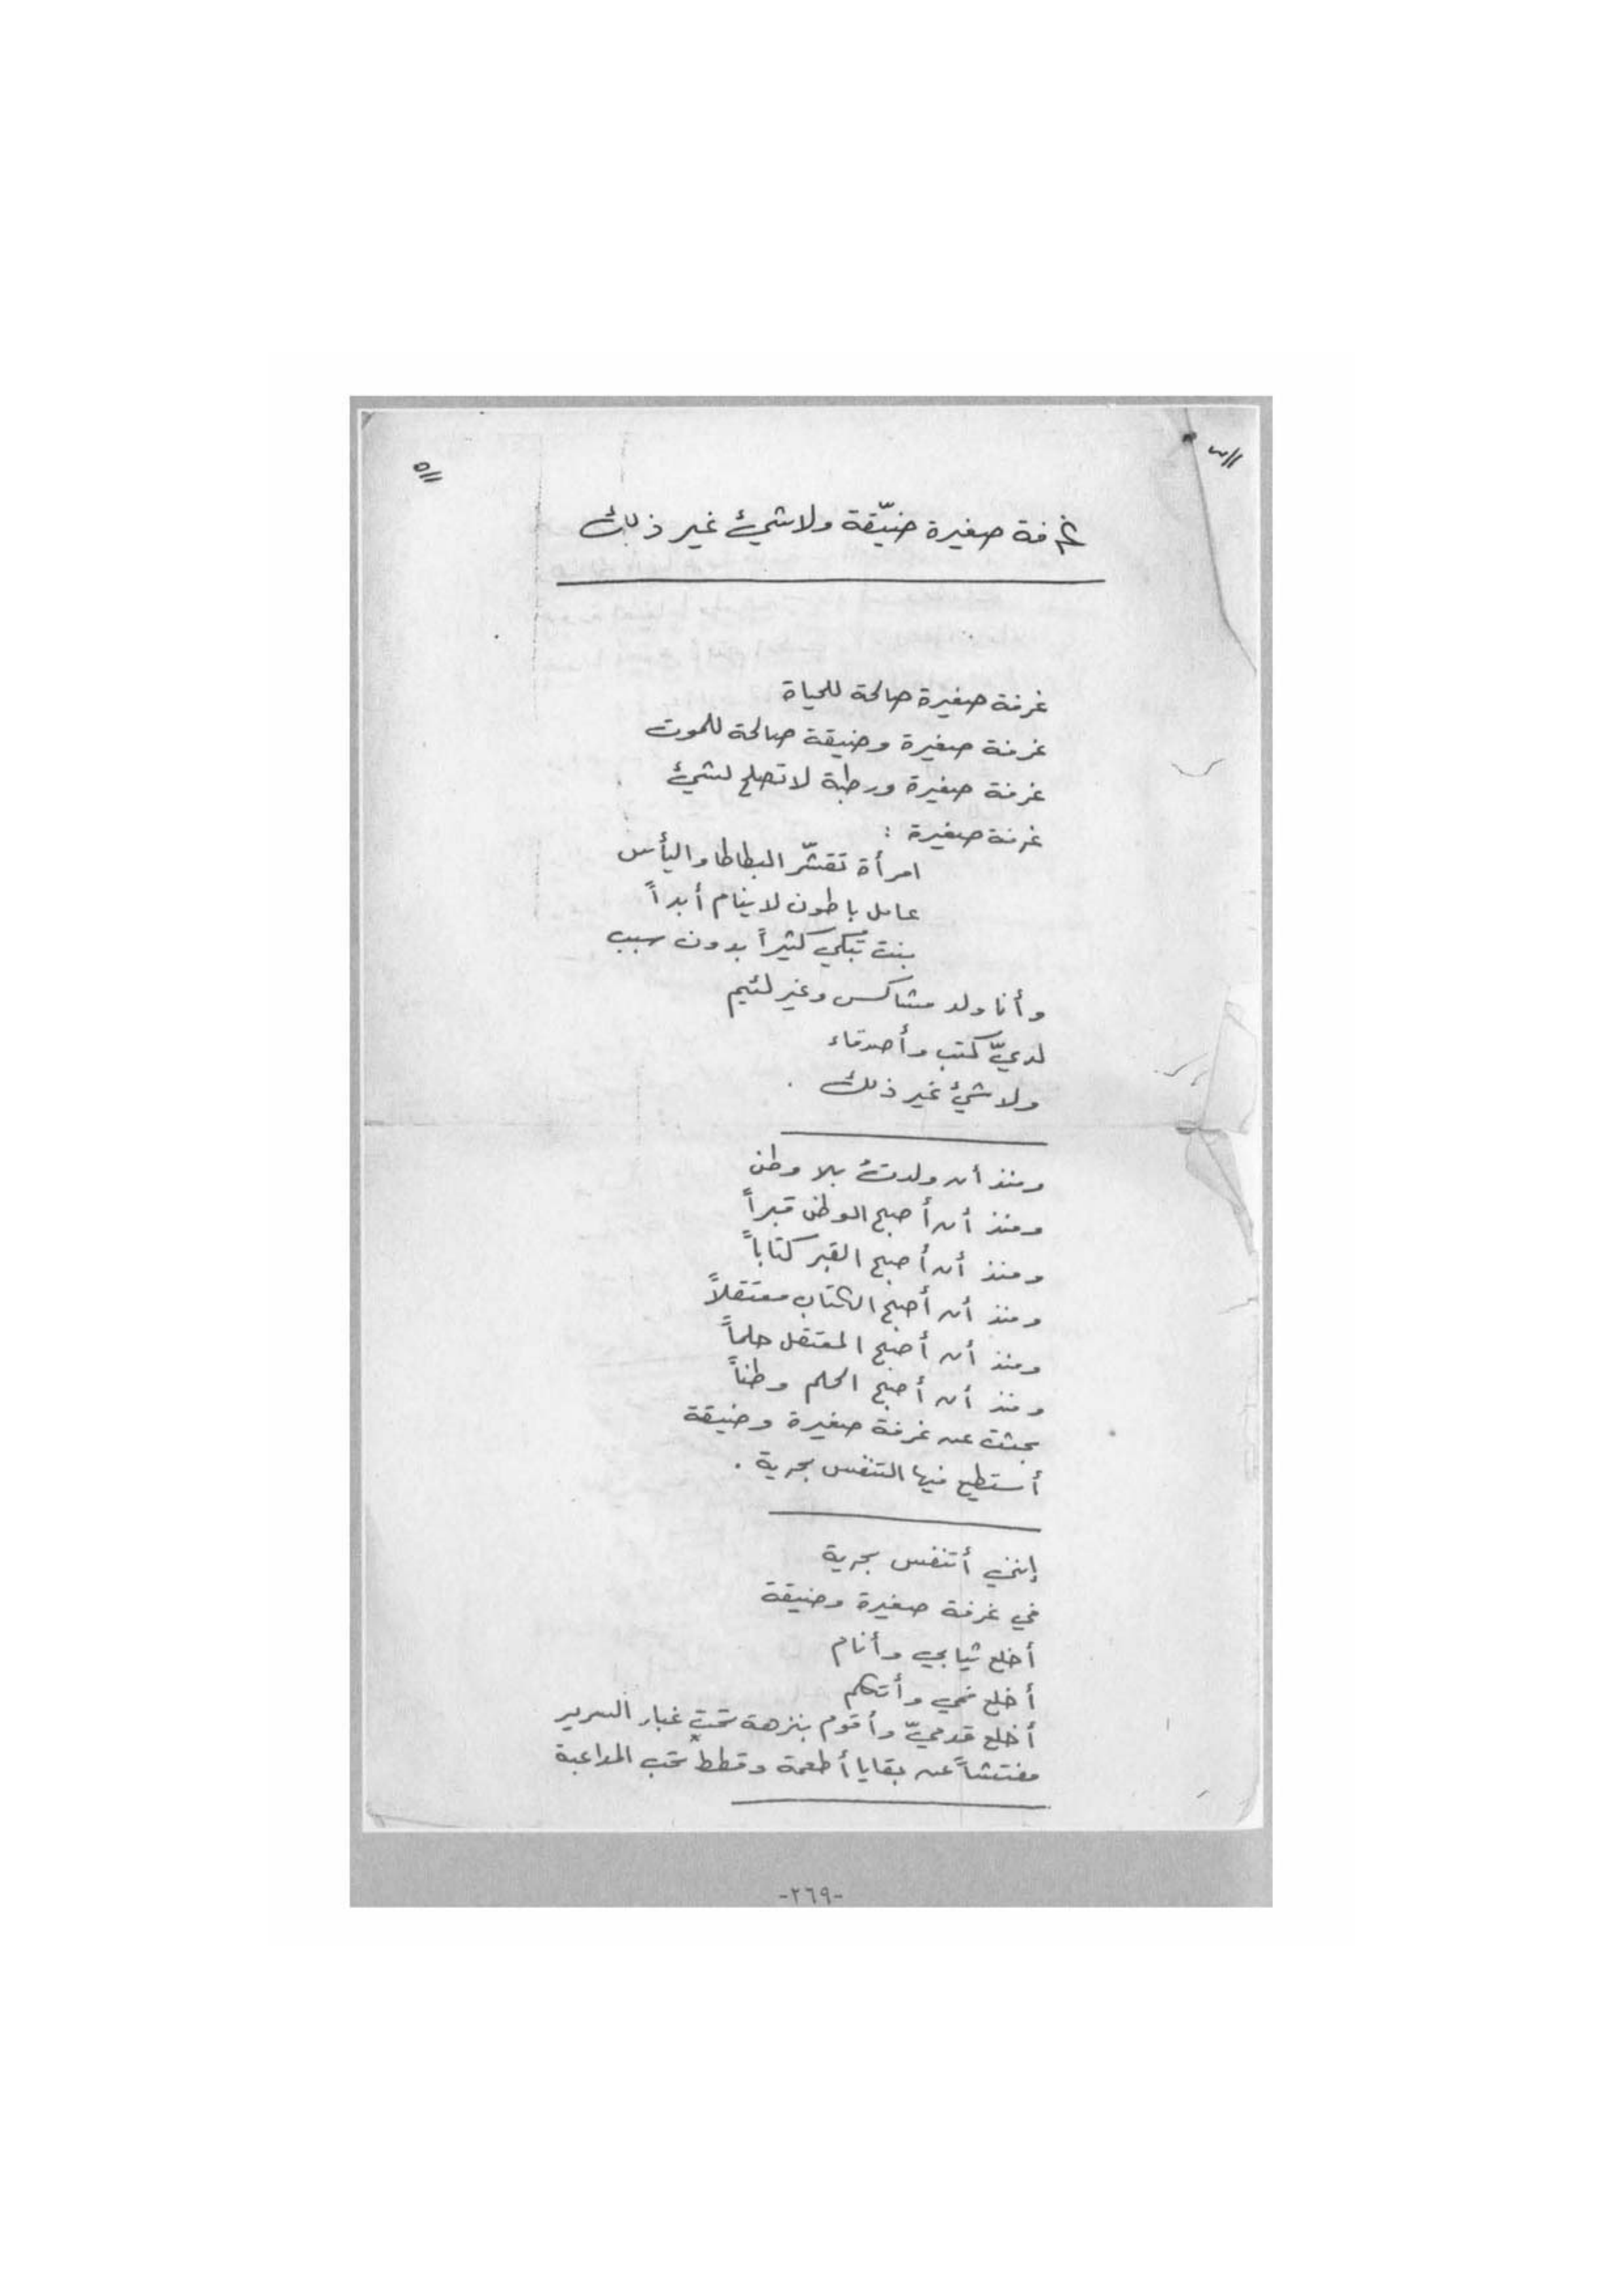 ٥
غرفة صغيرة ضيّقة ولاشيئ غير ذلك
غرفة صغيرة صالحة للحياة
غرفة صغيرة وضيقة صالحة للموت
غرفة صغيرة ورطبة لاتصلح لشيئ
غرفة صغيرة :
امرأة تقشّر البطاطا واليأس
عامل باطون لاينام أبداً
بنت تبكي كثيراً بدون سبب
وأنا ولد مشاكس وغير لئيم
لديّ كتب وأصدقاء
ولا شيئ غير ذلك .
ومنذ أن ولدتُ بلا وطن
ومنذ أن أصبح الوطن قبراً
ومنذ أن أصبح القبر كتاباً
ومنذ أن أصبح الكتاب معتقلاً
ومنذ أن أصبح المعتقل حلماً
ومنذ أن أصبح الحلم وطناً
بحثت عن غرفة صغيرة وضيقة
أستطيع فيها التنفس بحرية .
إنني أتنفس بحرية
في غرفة صغيرة وضيقة
أخلع ثيابي وأنام
أخلع فمي وأتكلم
أخلع قدميّ وأقوم بنزهة تحت غبار السرير
مفتشاً عن بقايا أطعمة وقطط تحب المداعبة
-٢٦٩-